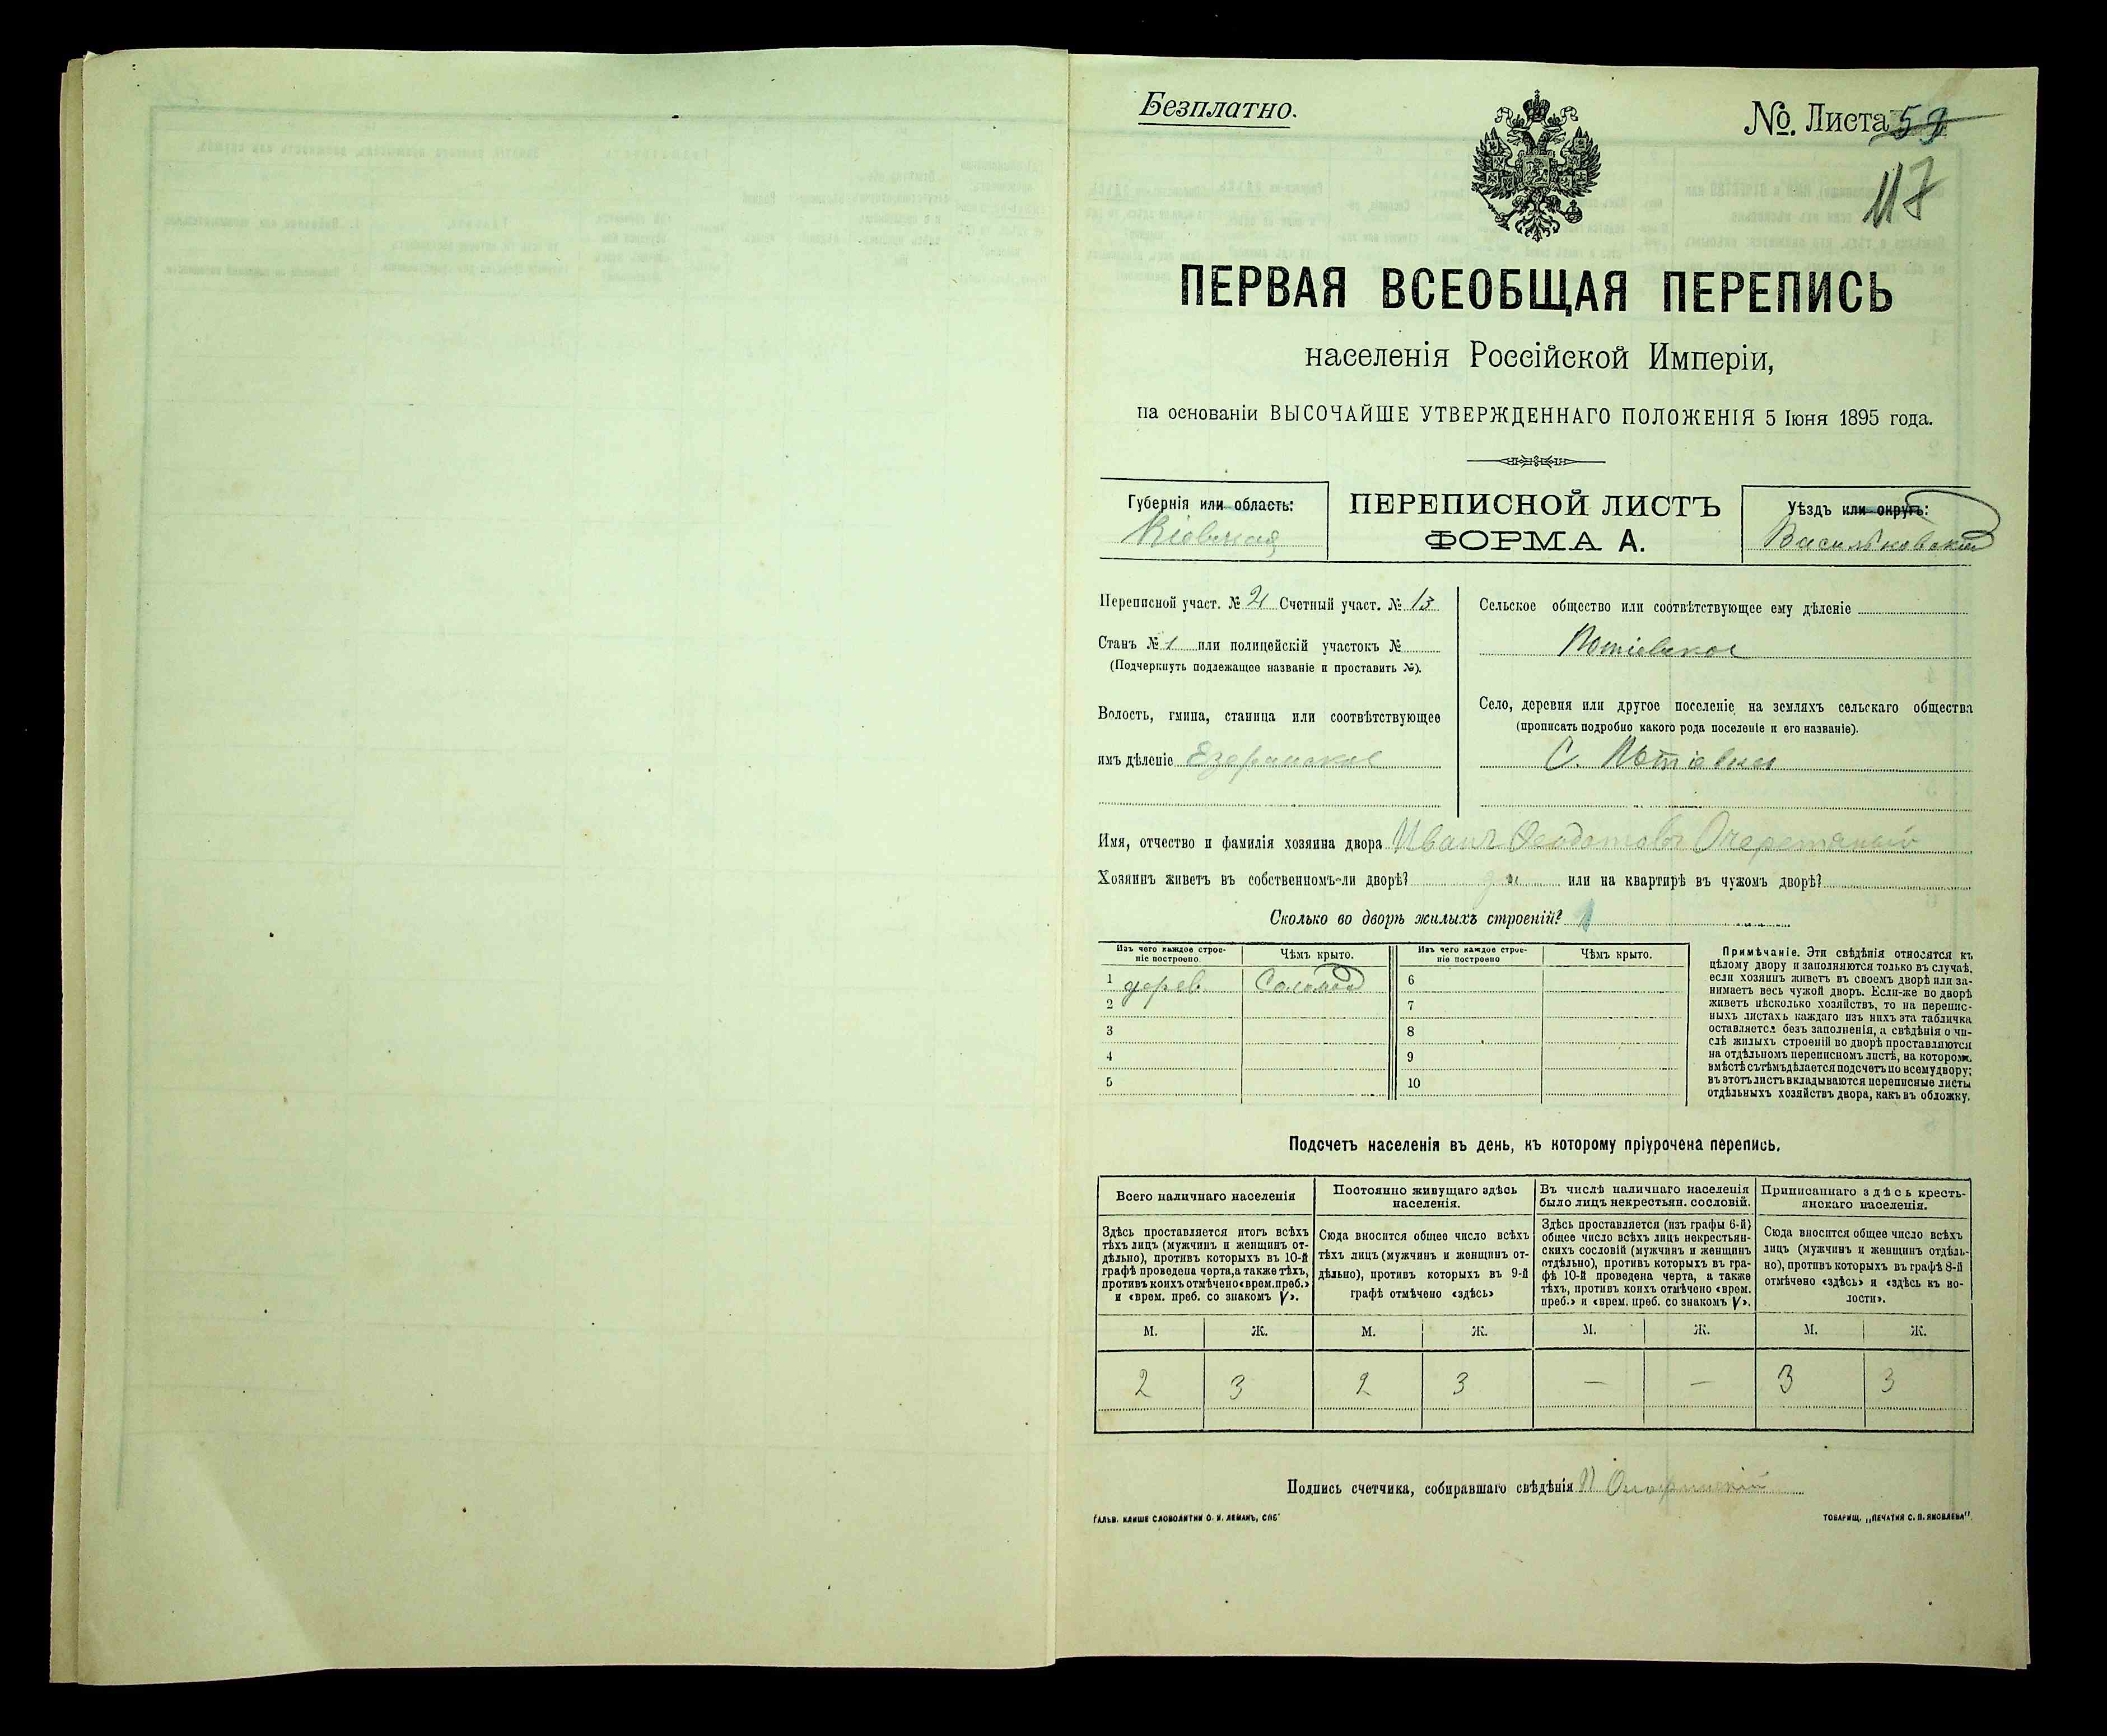 Безплатно.
№. Листа 59
117
ПЕРВАЯ ВСЕОБЩАЯ ПЕРЕПИСЬ
населенія Россійской Имперіи,
на основаніи ВЫСОЧАЙШЕ УТВЕРЖДЕННАГО ПОЛОЖЕНІЯ 5 Іюня 1895 года.
Губернія или область:
Кіевская
ПЕРЕПИСНОЙ ЛИСТЪ
ФОРМА А.
Уѣздъ или округъ:
Васильковскій
Переписной участ. № 21 Счетный участ. № 13
Станъ № 1 или полицейскій участокъ №
(Подчеркнуть подлежащее названіе и проставить №).
Волость, гмина, станица или соотвѣтствующее
имъ дѣленіе Езерянское
Сельское общество или соотвѣтствующее ему дѣленіе
Потіевское
Село, деревня или другое поселеніе на земляхъ сельскаго общества
(прописать подробно какого рода поселеніе и его названіе).
С. Потіевка
Имя, отчество и фамилія хозяина двора Иванъ Феодотовъ Очеретяный
Хозяинъ живетъ въ собственномъ-ли дворѣ? да или на квартирѣ въ чужомъ дворѣ?
Сколько во дворѣ жилыхъ строеній? 1
Изъ чего каждое строе-
ніе построено.
Чѣмъ крыто.
Изъ чего каждое строе-
ніе построено
Чѣмъ крыто.
1 дерев. Соломой 6
2 7
3 8
4 9
5 10
Примѣчаніе. Эти свѣдѣнія относятся къ
цѣлому двору и заполняются только въ случаѣ,
если хозяинъ живетъ въ своемъ дворѣ или за-
нимаетъ весь чужой дворъ. Если-же во дворѣ
живетъ нѣсколько хозяйствъ, то на перепис-
ныхъ листахъ каждаго изъ нихъ эта табличка
оставляется безъ заполненія, а свѣдѣнія о чи-
слѣ жилыхъ строеній во дворѣ проставляются
на отдѣльномъ переписномъ листѣ, на которомъ
вмѣстѣ съ тѣмъ дѣлается подсчетъ по всему двору;
въ этотъ листъ вкладываются переписные листы
отдѣльныхъ хозяйствъ двора, какъ въ обложку.
Подсчетъ населенія въ день, къ которому пріурочена перепись.
Всего наличнаго населенія
Здѣсь проставляется итогъ всѣхъ
тѣхъ лицъ (мужчинъ и женщинъ от-
дѣльно), противъ которыхъ въ 10-й
графѣ проведена черта, а также тѣхъ,
противъ коихъ отмѣчено «врем. преб.»
и «врем. преб. со знакомъ V».
Постоянно живущаго здѣсь
населенія.
Сюда вносится общее число всѣхъ
тѣхъ лицъ (мужчинъ и женщинъ от-
дѣльно), противъ которыхъ въ 9-й
графѣ отмѣчено «здѣсь»
Въ числѣ наличнаго населенія
было лицъ некрестьян. сословій.
Здѣсь проставляется (изъ графы 6-й)
общее число всѣхъ лицъ некрестьян-
скихъ сословій (мужчинъ и женщинъ
отдѣльно), противъ которыхъ въ гра-
фѣ 10-й проведена черта, а также
тѣхъ, противъ коихъ отмѣчено «врем.
преб.» и «врем. преб. со знакомъ V».
Приписаннаго здѣсь кресть-
янскаго населенія.
Сюда вносится общее число всѣхъ
лицъ (мужчинъ и женщинъ отдѣль-
но), противъ которыхъ въ графѣ 8-й
отмѣчено «здѣсь» и «здѣсь къ во-
лости».
М. Ж. М. Ж. М. Ж. М. Ж.
2 3 2 3 — — 3 3
Подпись счетчика, собиравшаго свѣдѣнія
ГАЛЬВ. КЛИШЕ СЛОВОЛИТНИ О. И. ЛЕМАНЪ, СПБ
ТОВАРИЩ. „ПЕЧАТНЯ С. П. ЯКОВЛЕВА".